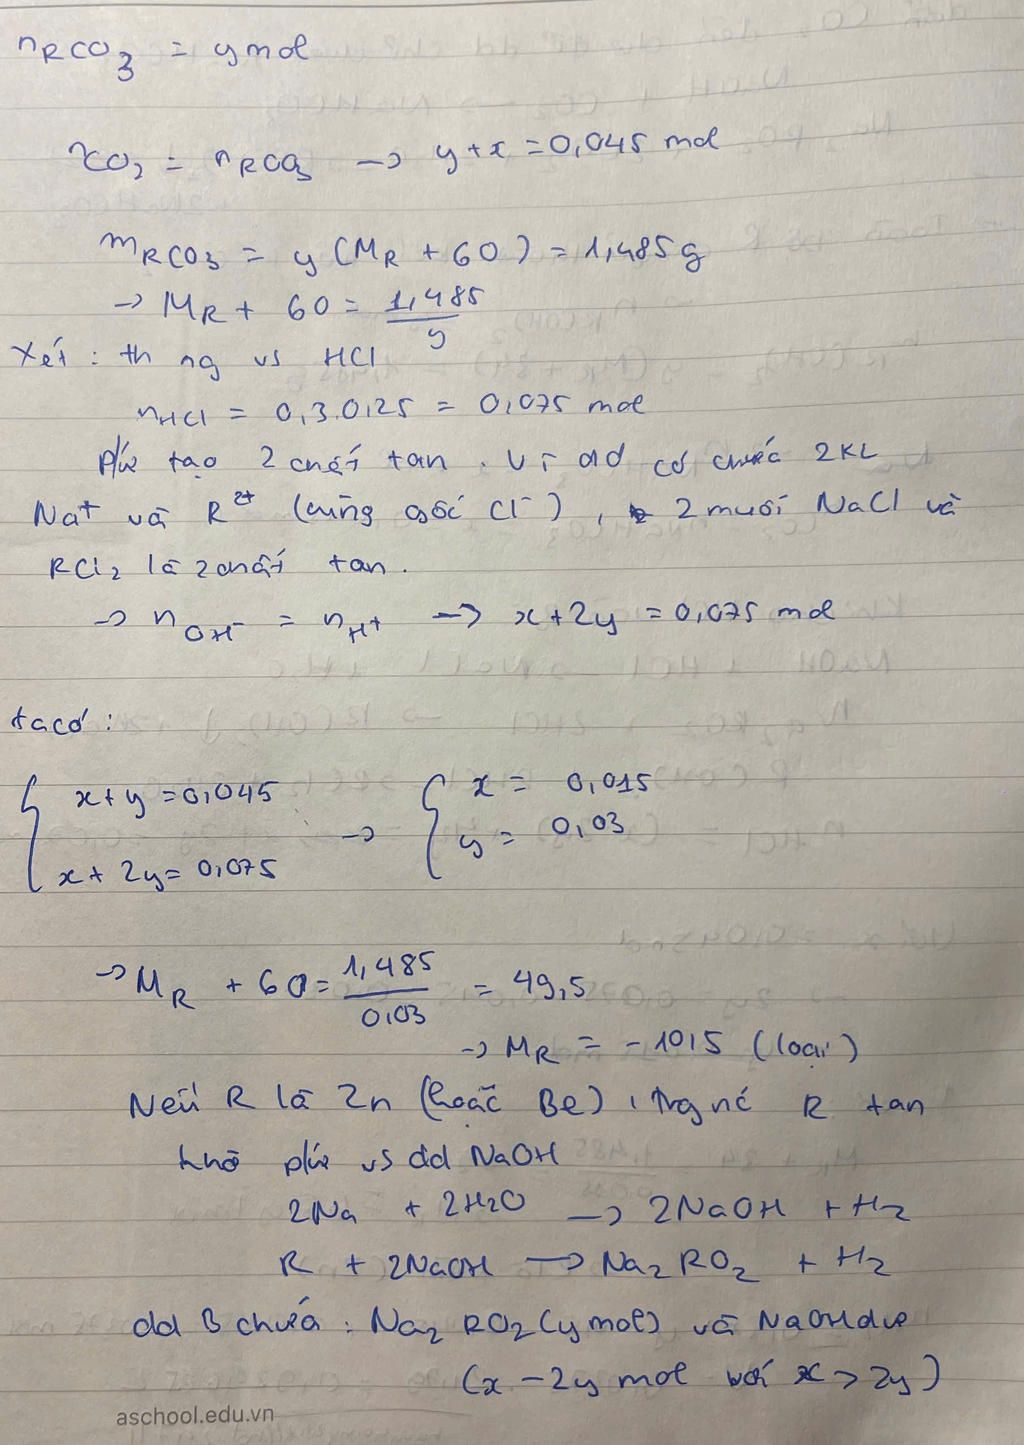 nRCO3 = y mol
nCO2 = nRCO3 → y+x = 0,045 mol
mRCO3 = y (MR + 60) = 1,485g
→ MR + 60 = 1,485/y
Xét : th ng vs HCl
nHCl = 0,3.0,25 = 0,075 mol
pứ tạo 2 chất tan . Vì dd có chứa 2KL
Na+ và R2+ (cùng gốc Cl-) , 2 muối NaCl và
RCl2 là 2 chất tan.
→ nOH- = nH+ → x+2y = 0,075 mol
ta có :
x+y = 0,045 → x = 0,015
x+ 2y = 0,075 y = 0,03
→ MR + 60 = 1,485/0,03 = 49,5
→ MR = -10,5 (loại)
Nếu R là Zn (hoặc Be) , R tan
khi pứ vs dd NaOH
2Na + 2H2O → 2NaOH + H2
R + 2NaOH → Na2RO2 + H2
dd B chứa : Na2RO2 (y mol) và NaOH dư
(x - 2y mol với x > 2y)
aschool.edu.vn